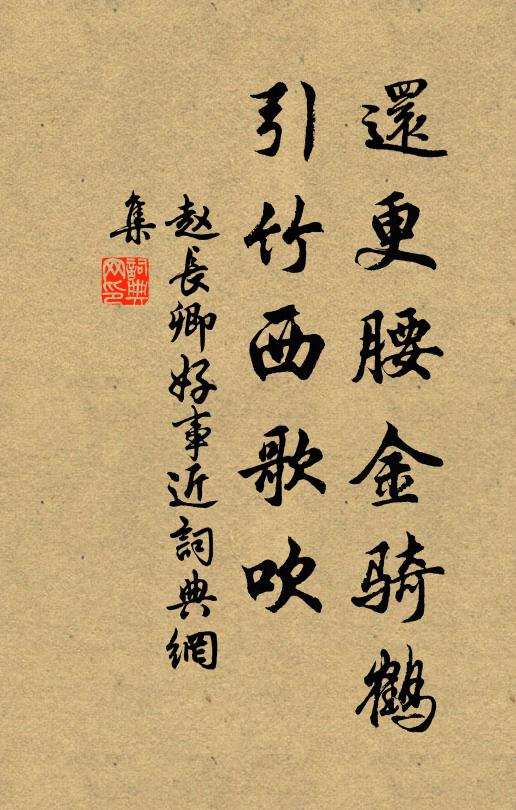 還更腰金骑鶴
引竹西歌吹
赵長卿好事近詞典網
集
詞典
网印